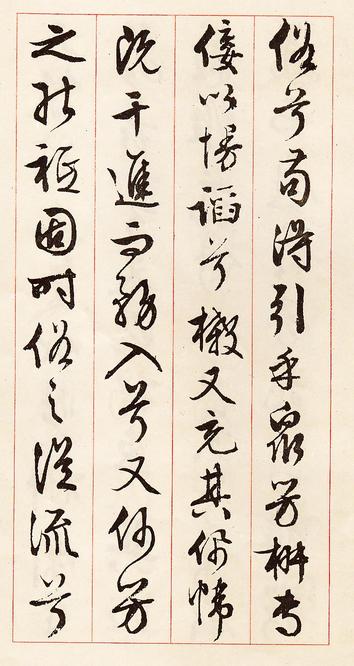 俗兮苟得引乎眾芳椒專
佞以慢謟兮樧又充其佩幃
既干進而務入兮又何芳
之能祗固時俗之從流兮